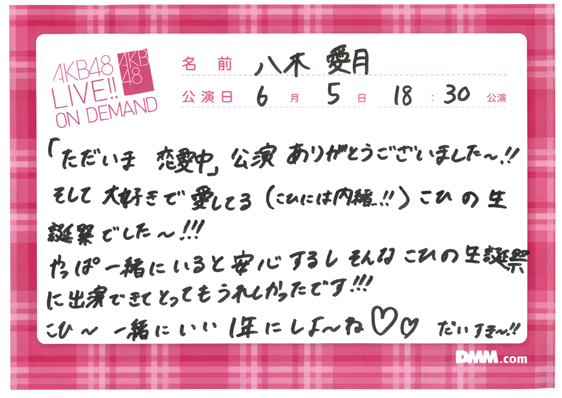 AKB48
LIVE!!
ON DEMAND
AKB
48
名前 八木 愛月
公演日 6月 5日 18:30 公演
「ただいま 恋愛中」公演 ありがとうございました〜!!
そして 大好きで 愛してる (こひには内緒..!!) こひの生
誕祭でした〜!!!
やっぱ一緒にいると安心するし そんな こひの生誕祭
に出演できてとってもうれしかったです!!!
こひ〜 一緒にいい 1年にしよ〜ね♡♡ だいすき〜!!
DMM.com